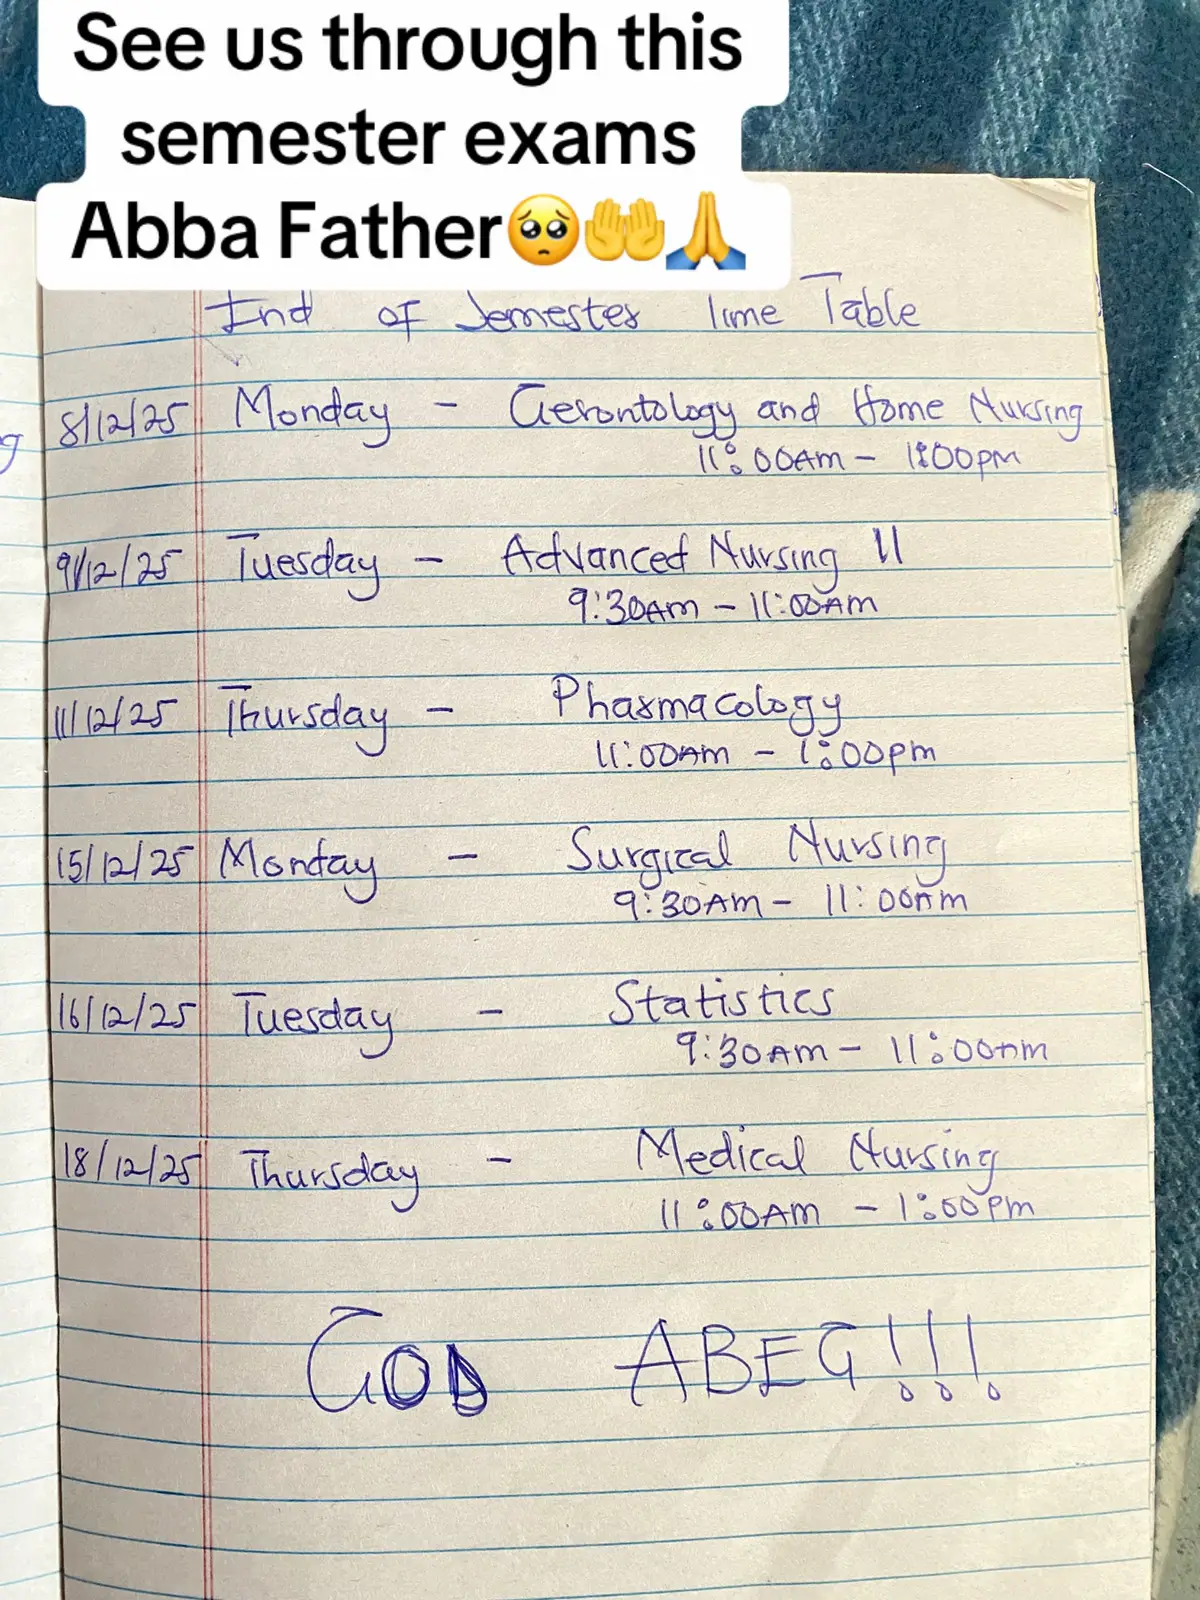 See us through this
semester exams
Abba Father🥺🤲🙏
End of Semester Time Table
8/12/25 Monday - Gerontology and Home Nursing
11:00AM - 1:00PM
9/12/25 Tuesday - Advanced Nursing II
9:30AM - 11:00AM
11/12/25 Thursday - Pharmacology
11:00AM - 1:00pm
15/12/25 Monday - Surgical Nursing
9:30AM - 11:00AM
16/12/25 Tuesday - Statistics
9:30AM - 11:00AM
18/12/25 Thursday - Medical Nursing
11:00AM - 1:00PM
GOD ABEG!!!